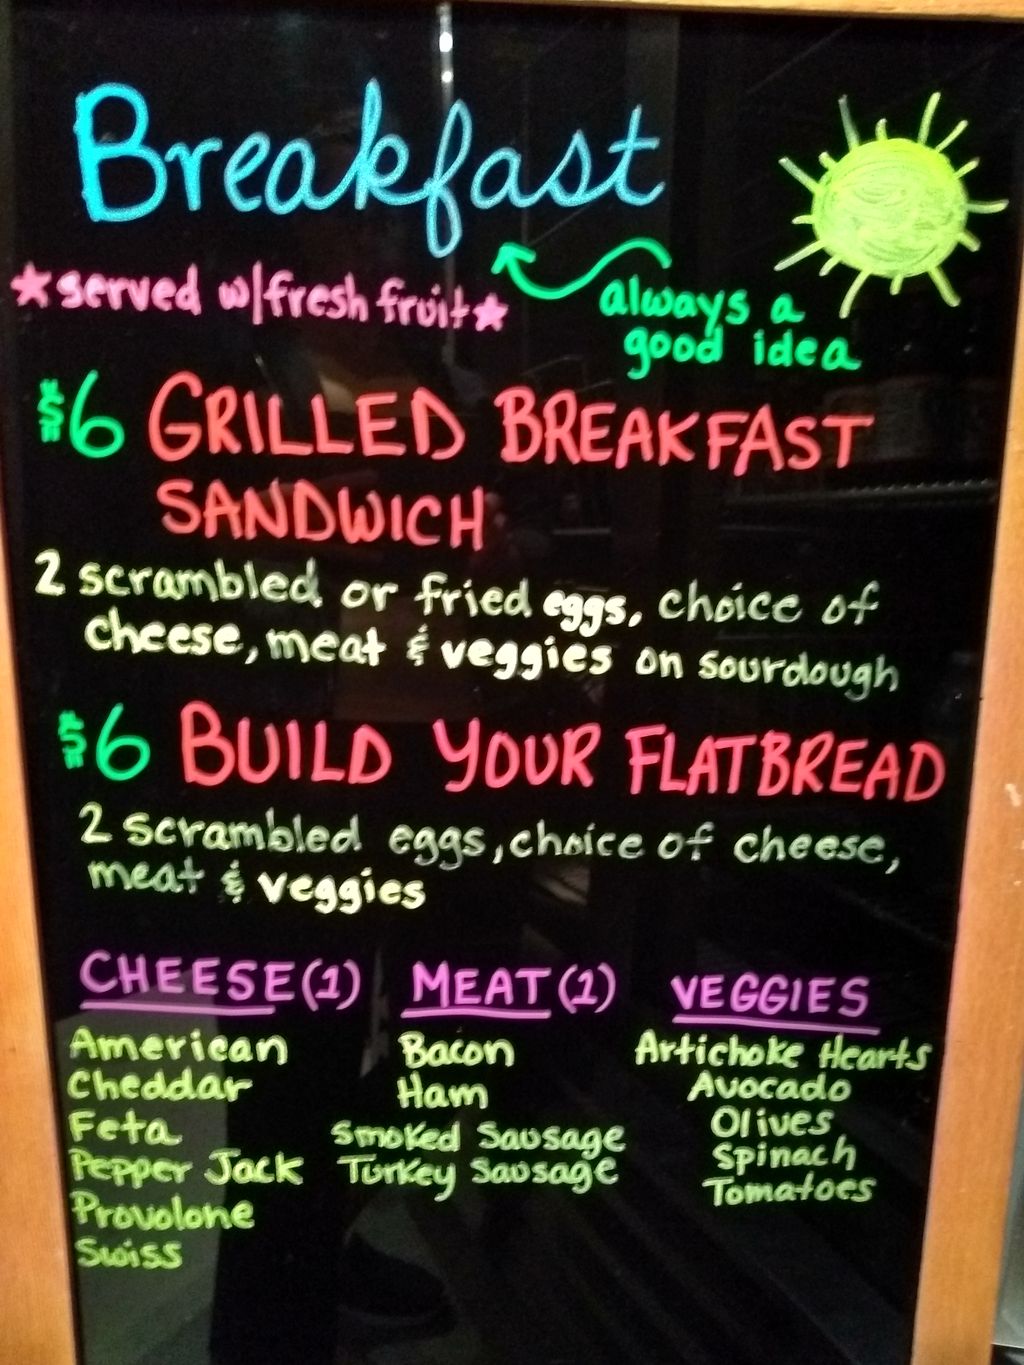 Breakfast
*served w/fresh fruit*
always a
good idea
$6 GRILLED BREAKFAST
SANDWICH
2 scrambled or fried eggs, choice of
cheese, meat & veggies on sourdough
$6 BUILD YOUR FLATBREAD
2 scrambled eggs, choice of cheese,
meat & veggies
CHEESE(1)
American
Cheddar
Feta
Pepper Jack
Provolone
Swiss
MEAT(1)
Bacon
Ham
Smoked Sausage
Turkey Sausage
VEGGIES
Artichoke Hearts
Avocado
Olives
Spinach
Tomatoes